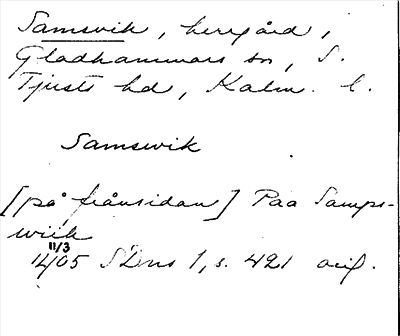 Samsvik, herrgård i
Gladhammars sn, S.
Tjusts hd, Kalm. l.
Samsevik
[på frånsidan] Paa Samps-
wiik
11/3
1405 SDns 1, s. 421 orig.